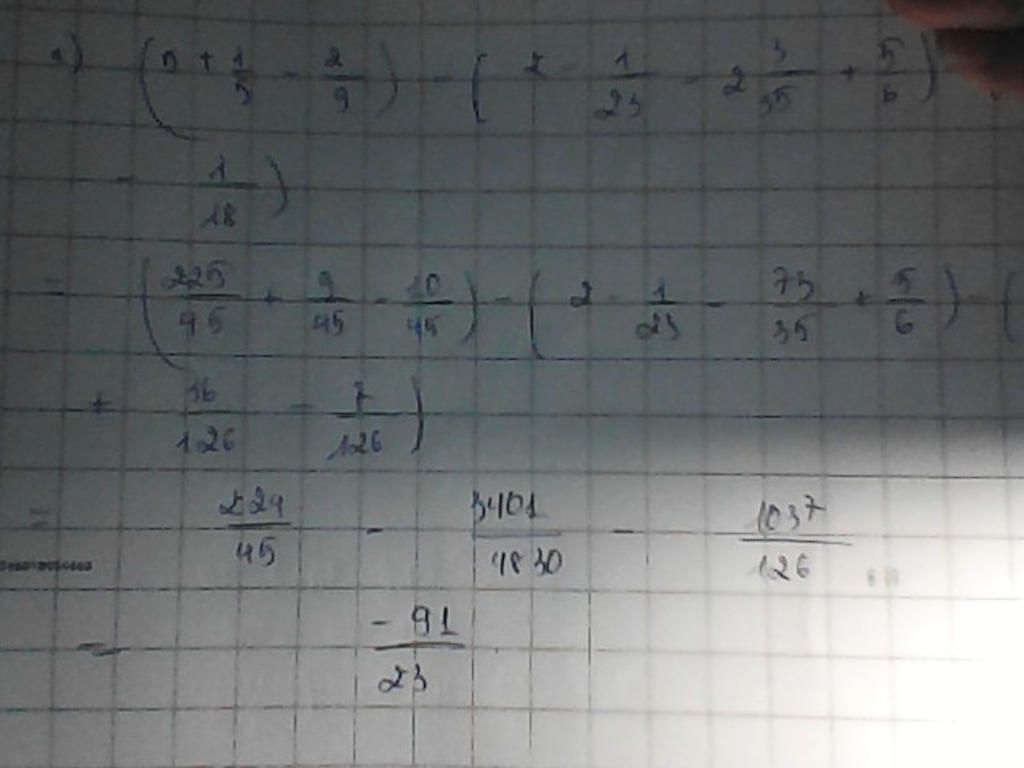 a) (5 + 1/5 - 2/9) - ( 2 - 1/23 - 2 3/35 + 5/6) - (
- 1/18 )
= (225/45 + 9/45 - 10/45) - ( 2 - 1/23 - 73/35 + 5/6 ) - (
+ 36/126 - 7/126 )
= 224/45 - 3401/4830 - 1037/126
= -91/23